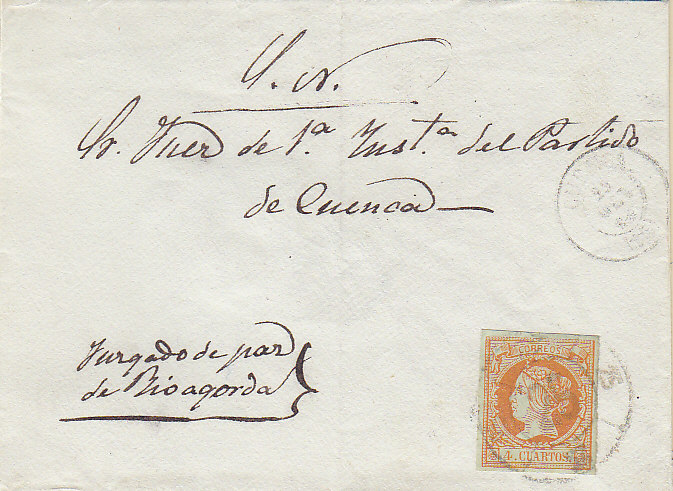 S. N.
Sr. Juez de 1.ª Inst.ª del Partido
de Cuenca
Juzgado de paz
de Rioagorda
CORREOS
4 CUARTOS